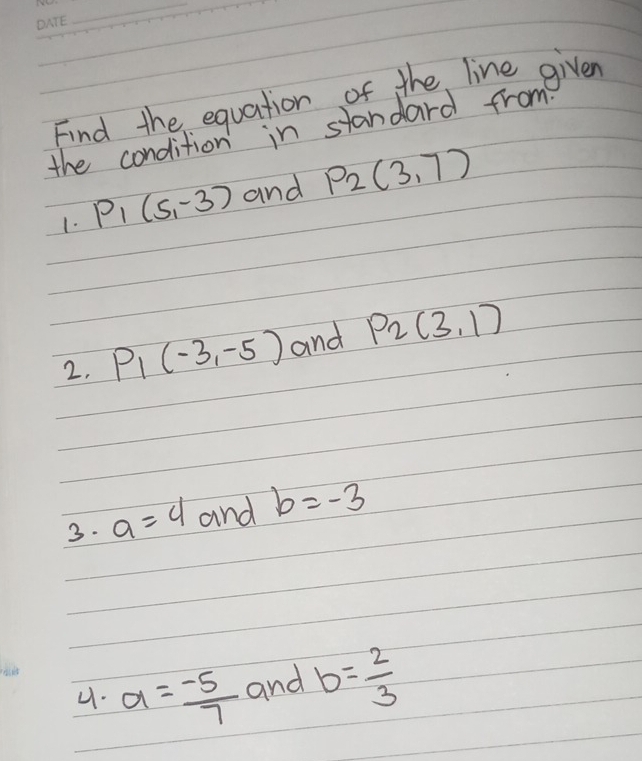 NO.
DATE
Find the equation of the line given
the condition in standard from.
1. P1 (5,-3) and P2 (3,7)
2. P1 (-3,-5) and P2 (3,1)
3. a = 4 and b = -3
4. a = -5/7 and b = 2/3